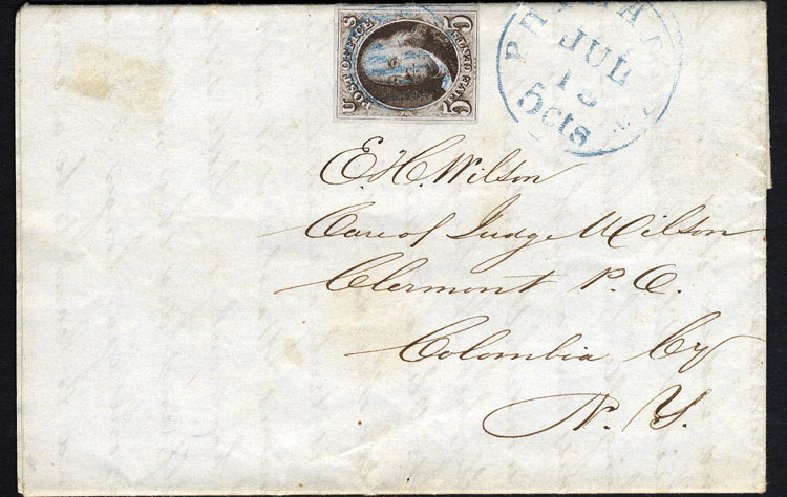 U S
POST OFFICE
FIVE CENTS
JUL
5cts
E. H. Wilson
Care of Judge Wilson
Clermont P. O.
Colombia Cy
N. Y.